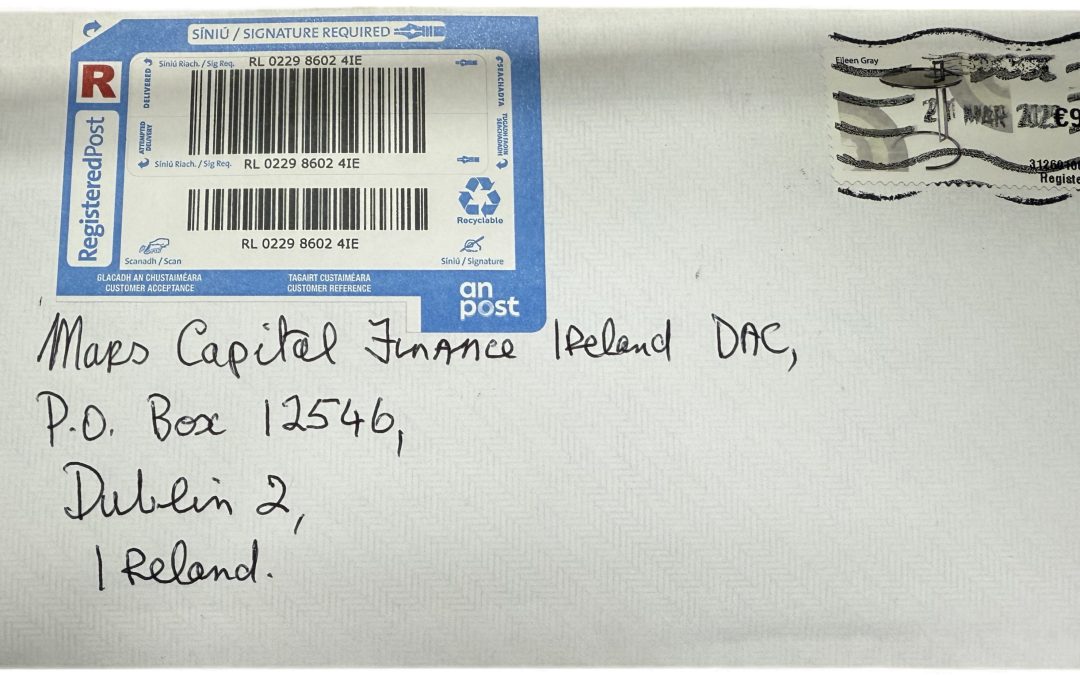 SÍNIÚ / SIGNATURE REQUIRED
R
RegisteredPost
DELIVERED
ATTEMPTED DELIVERY
Síniú Riach. / Sig Req.
RL 0229 8602 4IE
SEACHADTA
TUGADH FAOIN SEACHADADH
Síniú Riach. / Sig Req.
RL 0229 8602 4IE
Recyclable
RL 0229 8602 4IE
Scanadh / Scan
Síniú / Signature
GLACADH AN CHUSTAIMÉARA
CUSTOMER ACCEPTANCE
TAGAIRT CUSTAIMÉARA
CUSTOMER REFERENCE
an
post
Eileen Gray
MAR
€9
Registe
Mars Capital Finance Ireland DAC,
P.O. Box 12546,
Dublin 2,
Ireland.